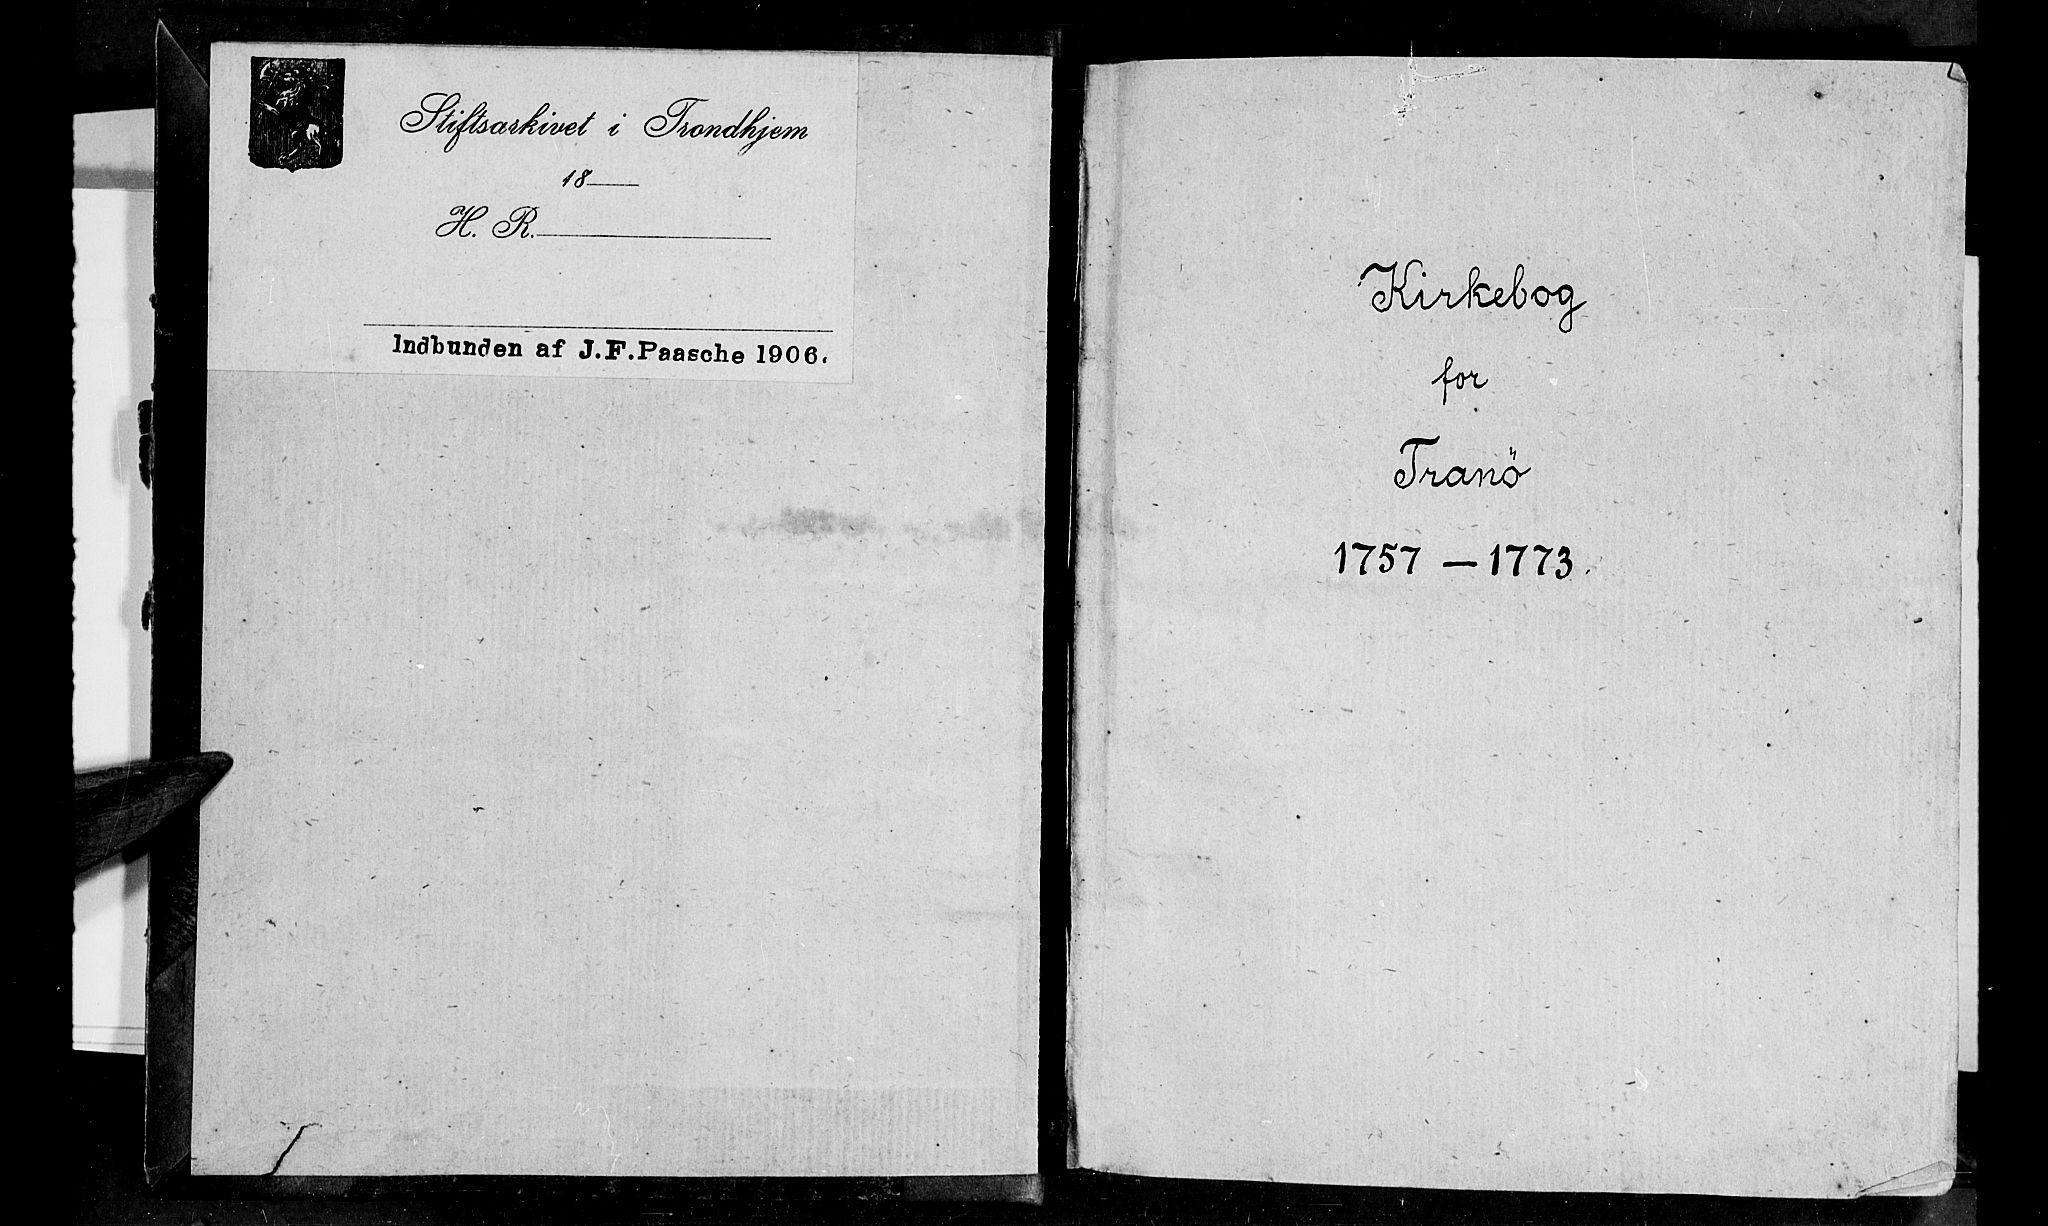 Stiftsarkivet i Trondhjem
18
H. R.
Indbunden af J.F.Paasche 1906.
Kirkebog
for
Tranö
1757 — 1773.